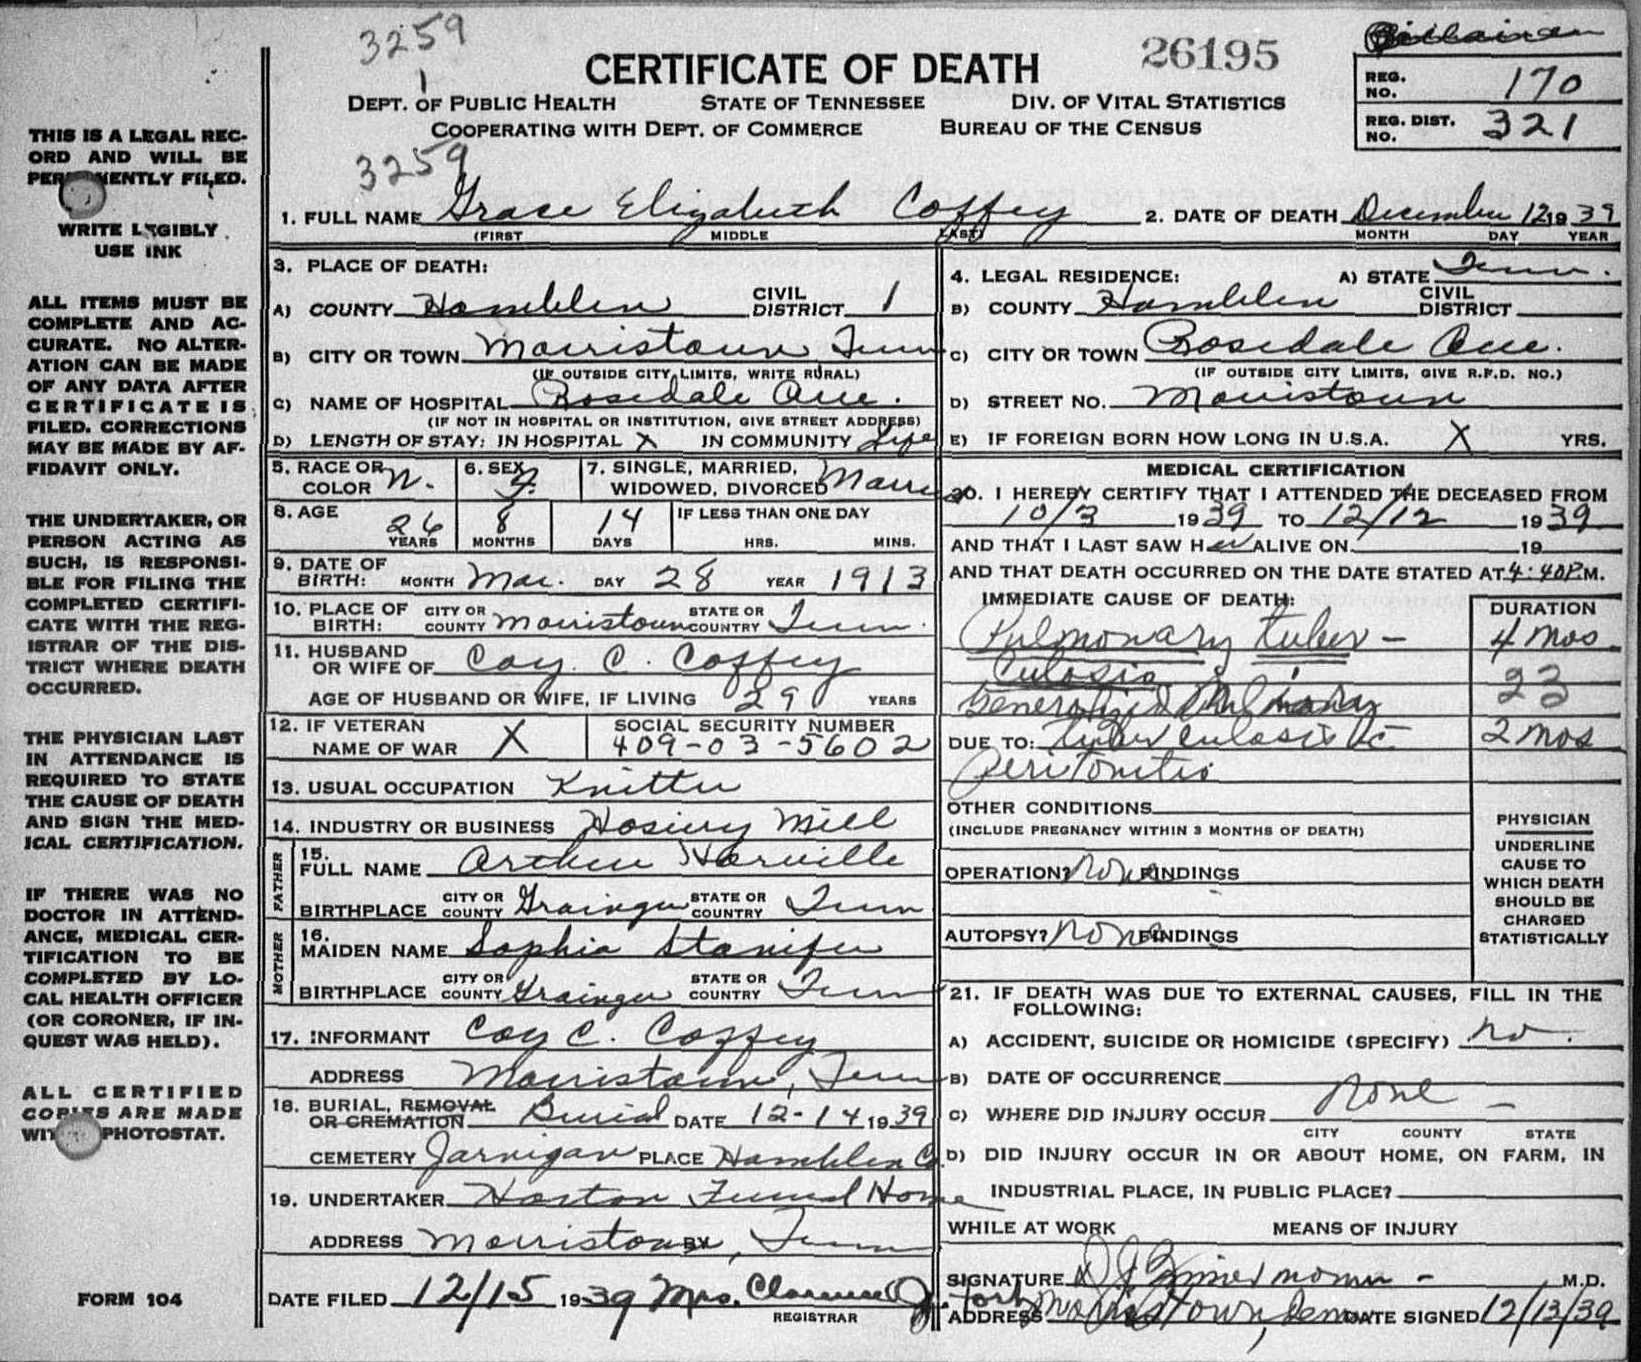 3259
1
26195
CERTIFICATE OF DEATH
DEPT. OF PUBLIC HEALTH STATE OF TENNESSEE DIV. OF VITAL STATISTICS
COOPERATING WITH DEPT. OF COMMERCE BUREAU OF THE CENSUS
REG. NO. 170
REG. DIST. NO. 321
3259
THIS IS A LEGAL REC-
ORD AND WILL BE
PERMANENTLY FILED.
WRITE LEGIBLY
USE INK
ALL ITEMS MUST BE
COMPLETE AND AC-
CURATE. NO ALTER-
ATION CAN BE MADE
OF ANY DATA AFTER
CERTIFICATE IS
FILED. CORRECTIONS
MAY BE MADE BY AF-
FIDAVIT ONLY.
THE UNDERTAKER, OR
PERSON ACTING AS
SUCH, IS RESPONSI-
BLE FOR FILING THE
COMPLETED CERTIFI-
CATE WITH THE REG-
ISTRAR OF THE DIS-
TRICT WHERE DEATH
OCCURRED.
THE PHYSICIAN LAST
IN ATTENDANCE IS
REQUIRED TO STATE
THE CAUSE OF DEATH
AND SIGN THE MED-
ICAL CERTIFICATION.
IF THERE WAS NO
DOCTOR IN ATTEND-
ANCE, MEDICAL CER-
TIFICATION TO BE
COMPLETED BY LO-
CAL HEALTH OFFICER
(OR CORONER, IF IN-
QUEST WAS HELD).
ALL CERTIFIED
COPIES ARE MADE
WITH PHOTOSTAT.
FORM 104
1. FULL NAME Grace Elizabeth Coffey 2. DATE OF DEATH December 12 1939
(FIRST MIDDLE LAST) MONTH DAY YEAR
3. PLACE OF DEATH:
A) COUNTY Hamblen CIVIL DISTRICT 1
B) CITY OR TOWN Morristown Tenn
(IF OUTSIDE CITY LIMITS, WRITE RURAL)
C) NAME OF HOSPITAL Rosedale Ave.
(IF NOT IN HOSPITAL OR INSTITUTION, GIVE STREET ADDRESS)
D) LENGTH OF STAY: IN HOSPITAL X IN COMMUNITY Life
4. LEGAL RESIDENCE: A) STATE Tenn.
B) COUNTY Hamblen CIVIL DISTRICT
C) CITY OR TOWN Rosedale Ave.
(IF OUTSIDE CITY LIMITS, GIVE R.F.D. NO.)
D) STREET NO. Morristown
E) IF FOREIGN BORN HOW LONG IN U.S.A. X YRS.
5. RACE OR COLOR W. 6. SEX F. 7. SINGLE, MARRIED, WIDOWED, DIVORCED Married
8. AGE 26 YEARS 8 MONTHS 14 DAYS IF LESS THAN ONE DAY HRS. MINS.
9. DATE OF BIRTH: MONTH Mar. DAY 28 YEAR 1913
10. PLACE OF BIRTH: CITY OR COUNTY Morristown STATE OR COUNTRY Tenn.
11. HUSBAND OR WIFE OF Coy. C. Coffey
AGE OF HUSBAND OR WIFE, IF LIVING 29 YEARS
12. IF VETERAN NAME OF WAR X SOCIAL SECURITY NUMBER 409-03-5602
13. USUAL OCCUPATION Knitter
14. INDUSTRY OR BUSINESS Hosiery Mill
FATHER
15. FULL NAME Arthur Harville
BIRTHPLACE CITY OR COUNTY Grainger STATE OR COUNTRY Tenn
MOTHER
16. MAIDEN NAME Sophia Stanifer
BIRTHPLACE CITY OR COUNTY Grainger STATE OR COUNTRY Tenn
17. INFORMANT Coy C. Coffey
ADDRESS Morristown, Tenn
18. BURIAL, REMOVAL OR CREMATION Burial DATE 12-14 1939
CEMETERY Jarnigan PLACE Hamblen Co.
19. UNDERTAKER Horton Funeral Home
ADDRESS Morristown, Tenn BY
DATE FILED 12/15 1939 Mrs. Clarence
REGISTRAR
MEDICAL CERTIFICATION
20. I HEREBY CERTIFY THAT I ATTENDED THE DECEASED FROM
10/3 1939 TO 12/12 1939
AND THAT I LAST SAW Her ALIVE ON 19
AND THAT DEATH OCCURRED ON THE DATE STATED AT 4:40 P.M.
IMMEDIATE CAUSE OF DEATH: DURATION
Pulmonary tuber- 4 mos
culosis 23
Generalized
DUE TO: tuberculosis 2 mos
Peritonitis
OTHER CONDITIONS
(INCLUDE PREGNANCY WITHIN 3 MONTHS OF DEATH)
OPERATION? None FINDINGS
AUTOPSY? None FINDINGS
PHYSICIAN
UNDERLINE
CAUSE TO
WHICH DEATH
SHOULD BE
CHARGED
STATISTICALLY
21. IF DEATH WAS DUE TO EXTERNAL CAUSES, FILL IN THE
FOLLOWING:
A) ACCIDENT, SUICIDE OR HOMICIDE (SPECIFY) no.
B) DATE OF OCCURRENCE
C) WHERE DID INJURY OCCUR None
CITY COUNTY STATE
D) DID INJURY OCCUR IN OR ABOUT HOME, ON FARM, IN
INDUSTRIAL PLACE, IN PUBLIC PLACE?
WHILE AT WORK MEANS OF INJURY
SIGNATURE D J Zimmerman M.D.
ADDRESS Morristown, Tenn DATE SIGNED 12/13/39